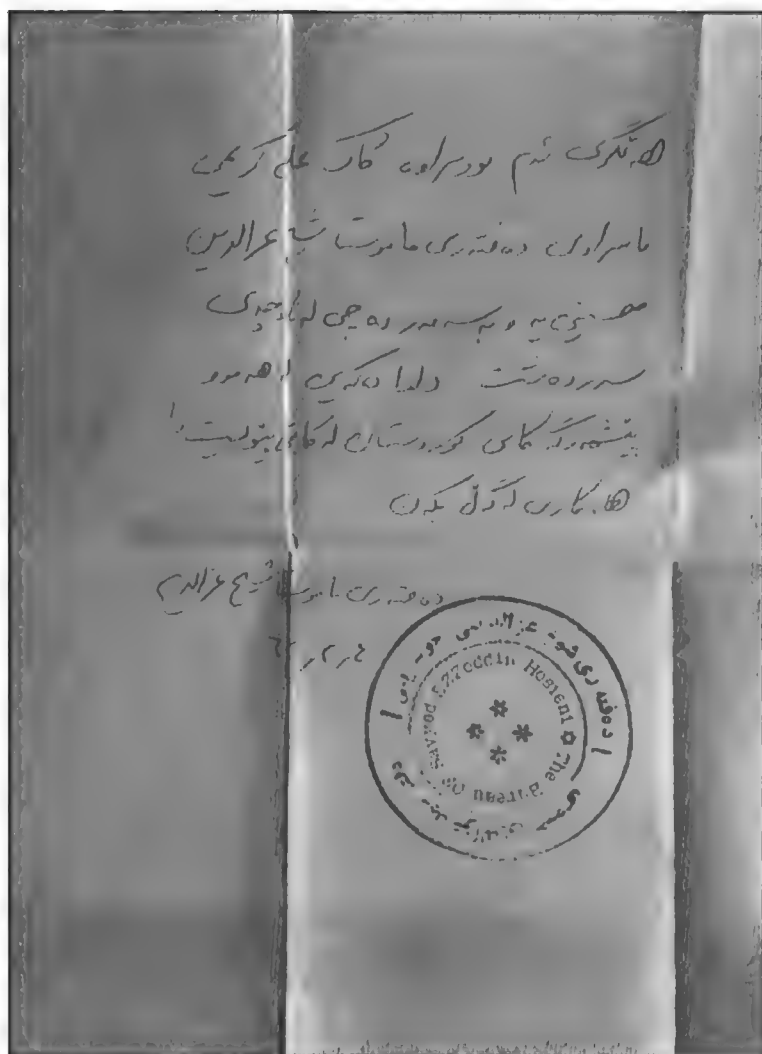 هەڵگری ئەم نوسراوە کاک علی کریمی
ناسراوی دەفتەری ماموستا شیخ عزالدین
حسینی یە و بەسەر دەچی لە ناوچەی
سەردەشت داوا دەکەین لە هەموو
پێشمەرگەکانی کوردستان لە کاتی پێویستدا
هاوکاری لەگەڵ بکەن
دەفتەری ماموستا شیخ عزالدین
دەفتەری شیخ عزالدینی حوسەینی
The Bureau Of Sayed Ezzeddin Hosieni